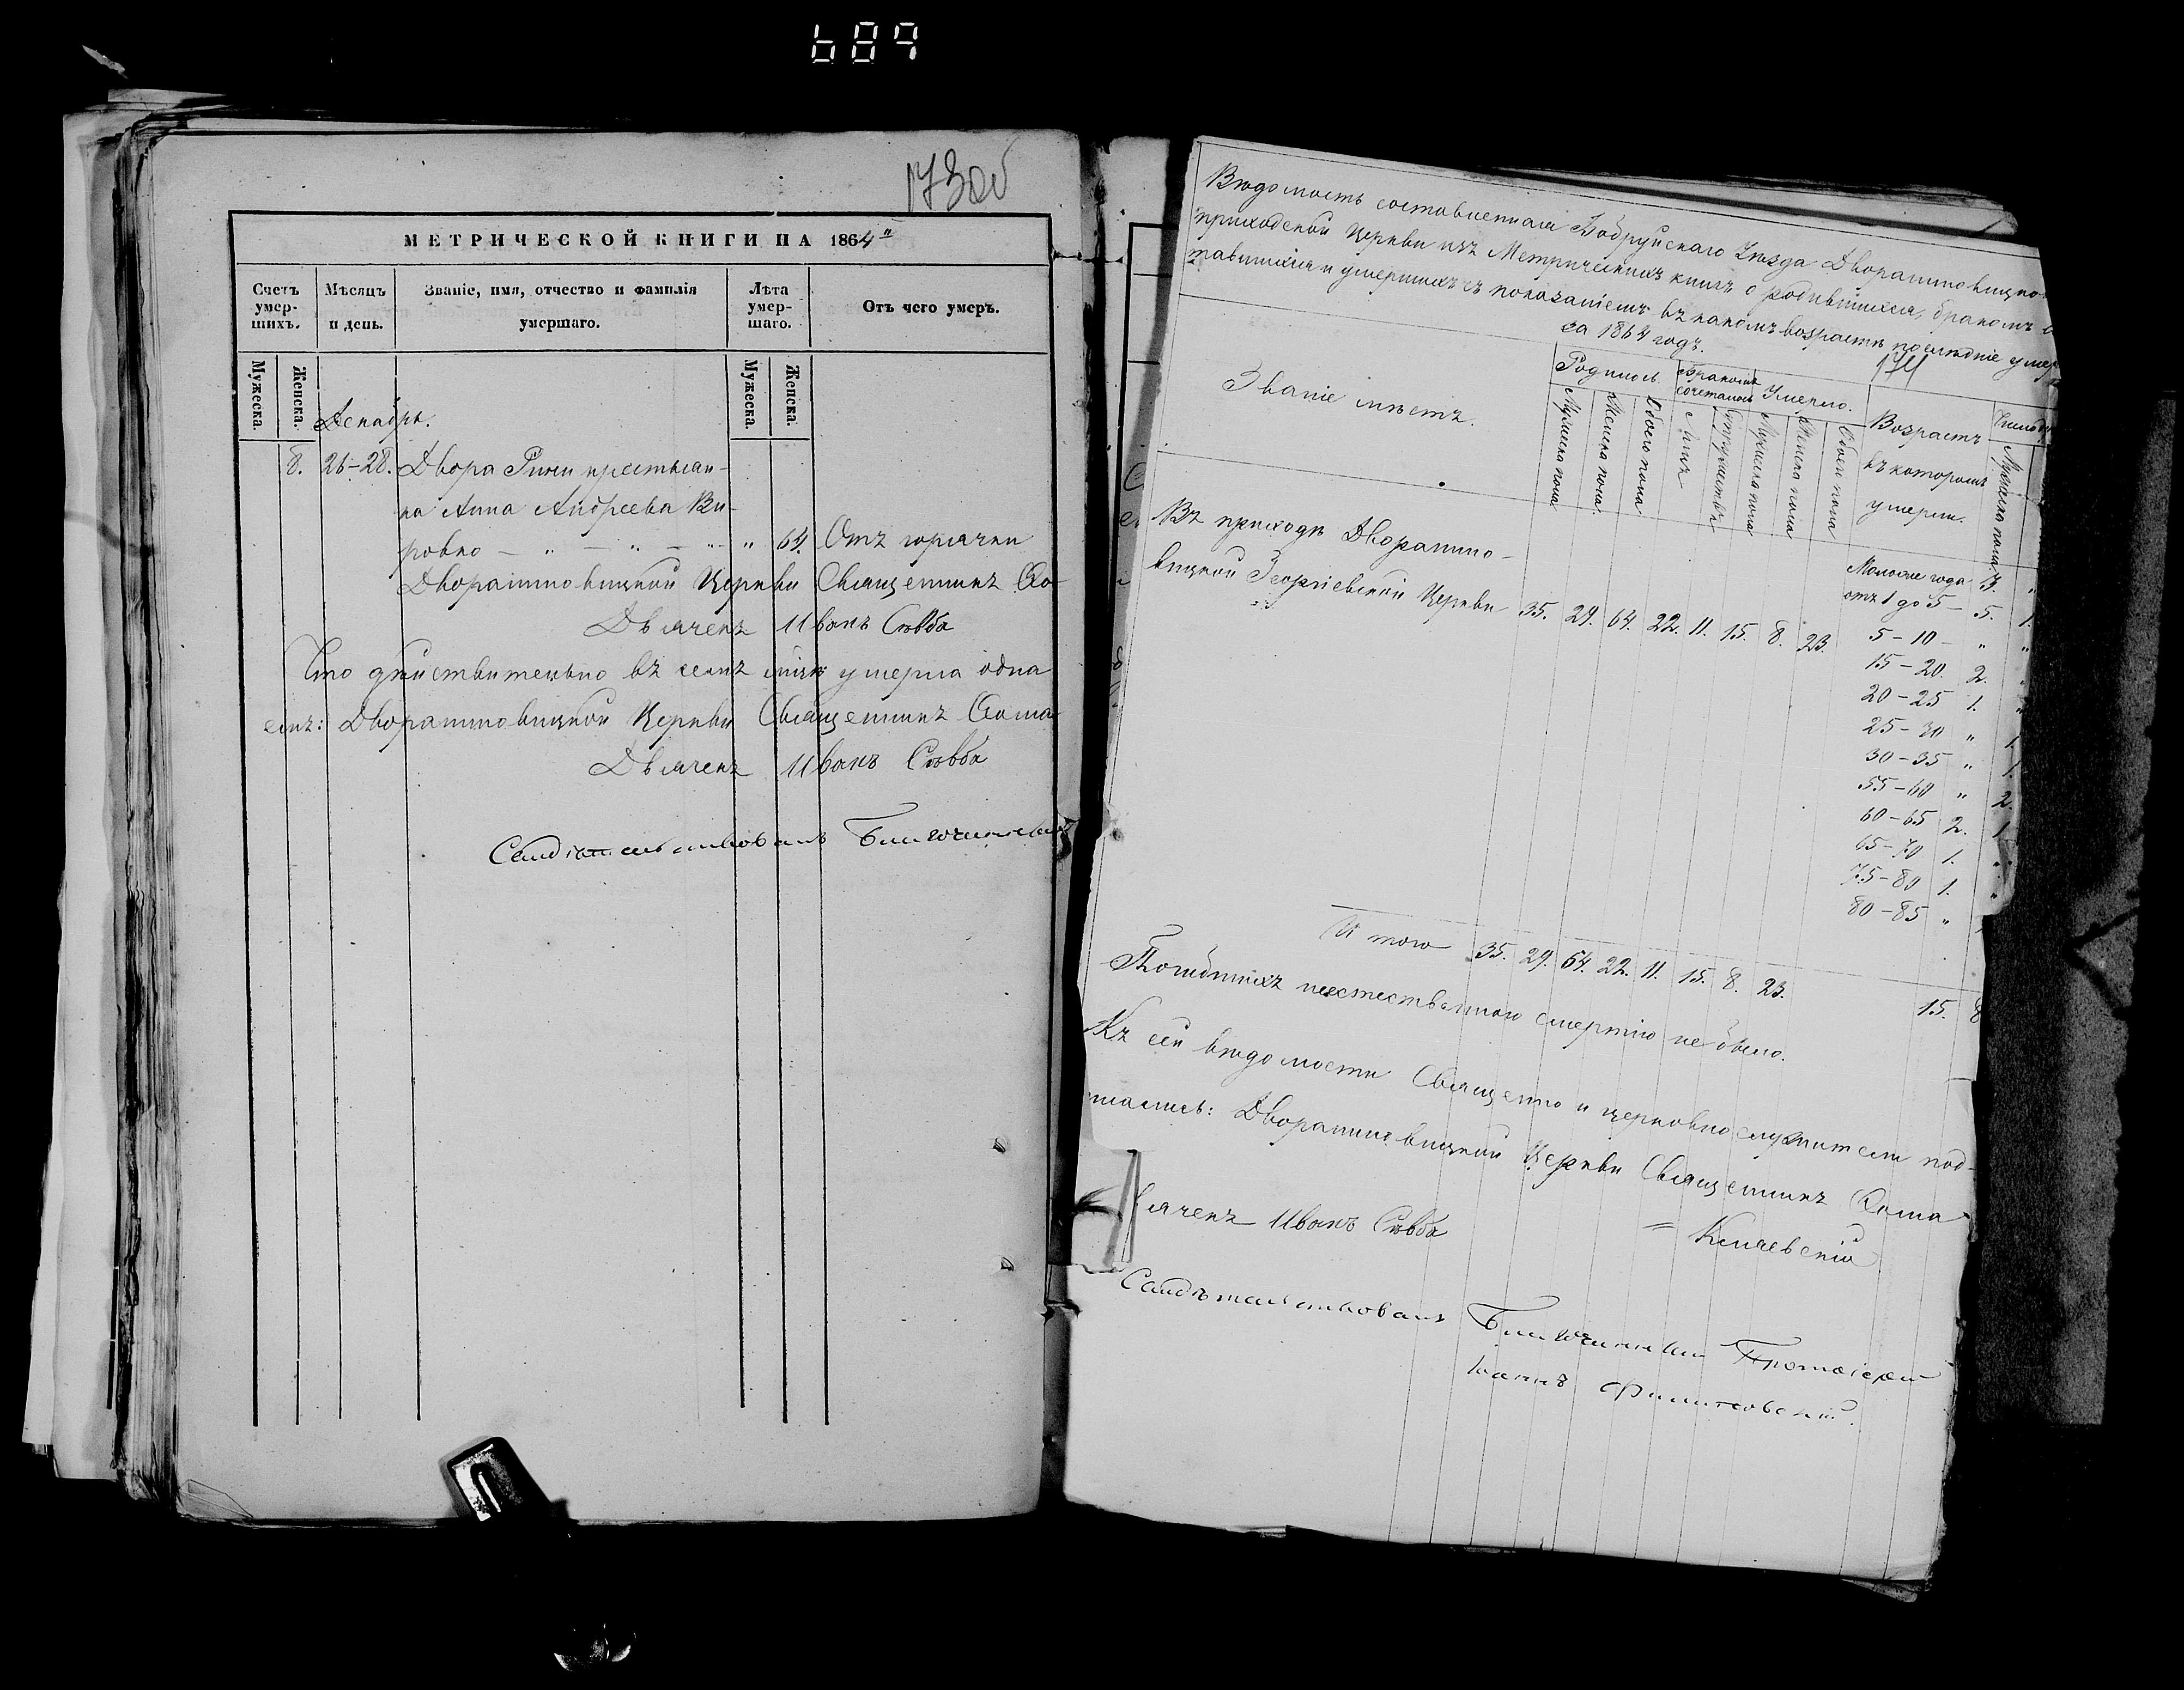 689
173об
МЕТРИЧЕСКОЙ КНИГИ НА 1864й
Счетъ умер-шихъ.
Мѣсяцъ и день.
Званіе, имя, отчество и фамилія умершаго.
Лѣта умер-шаго.
Отъ чего умеръ.
Мужеска.
Женска.
Мужеска.
Женска.
Декабрь.
8. 26–28. Двора крестьян-
ка Анна Андреева Ки-
ровко — " — " — " — " 64. Отъ горячки
Дворанинов­ицкой Церкви Священникъ Ѳо-
Дьячекъ Иванъ Сѣвба
Что дѣйствительно въ семъ мцѣ умерла одна
емъ: Церкви Священникъ Ѳома
Дьячекъ Иванъ Сѣвба
Свидѣтельствовалъ Благочинный
Вѣдомость составленная Бобруйскаго Уѣзда
приходской Церкви изъ Метрическихъ книгъ о родившихся, бракомъ со
тавшихся и умершихъ съ показаніемъ въ какомъ возрастѣ послѣдніе умер
за 1864 годъ.
174
Званіе мѣстъ.
Родилось
Бракомъ сочеталось
Умерло.
Возрастъ въ которомъ умерли.
Число
Мужеска пола
Женска пола
Обоего пола
Лицъ
Супружествъ
Мужеска пола
Женска пола
Обоего пола
Мужеска пола
Въ приходѣ
Георгіевской Церкви 35. 29. 64. 22. 11. 15. 8. 23.
Моложе года 3. "
отъ 1 до 5 — 5. 1.
5–10 — " "
15–20. 2. "
20–25 1. "
25–30 " 1.
30–35 " 1.
55–60 " 2.
60–65 2. 1.
65–70 1. "
75–80 1. "
80–85 "
Итого 35. 29. 64. 22. 11. 15. 8. 23. 15. 8
Погибшихъ неестественною смертію не было.
Къ сей вѣдомости Священно и церковнослужители под-
писались: Церкви Священникъ Ѳома
= Кмачевскій
ьячекъ Иванъ Сѣвба
Свидѣтельствовалъ Благочинный Протоіерей
Іоаннъ